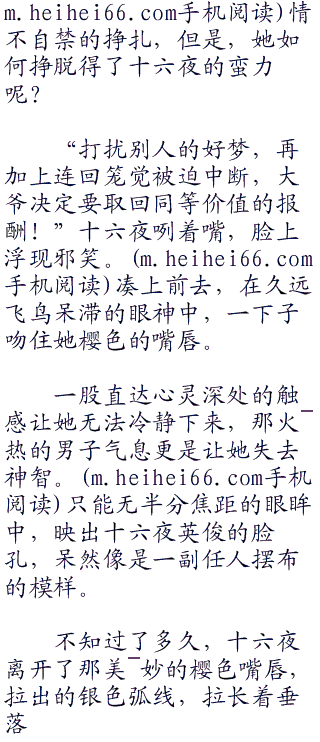 m.heihei66.com手机阅读)情
不自禁的挣扎，但是，她如
何挣脱得了十六夜的蛮力
呢？
“打扰别人的好梦，再
加上连回笼觉被迫中断，大
爷决定要取回同等价值的报
酬！”十六夜咧着嘴，脸上
浮现邪笑。(m.heihei66.com
手机阅读)凑上前去，在久远
飞鸟呆滞的眼神中，一下子
吻住她樱色的嘴唇。
一股直达心灵深处的触
感让她无法冷静下来，那火¯
热的男子气息更是让她失去
神智。(m.heihei66.com手机
阅读)只能无半分焦距的眼眸
中，映出十六夜英俊的脸
孔，呆然像是一副任人摆布
的模样。
不知过了多久，十六夜
离开了那美¯妙的樱色嘴唇，
拉出的银色弧线，拉长着垂
落